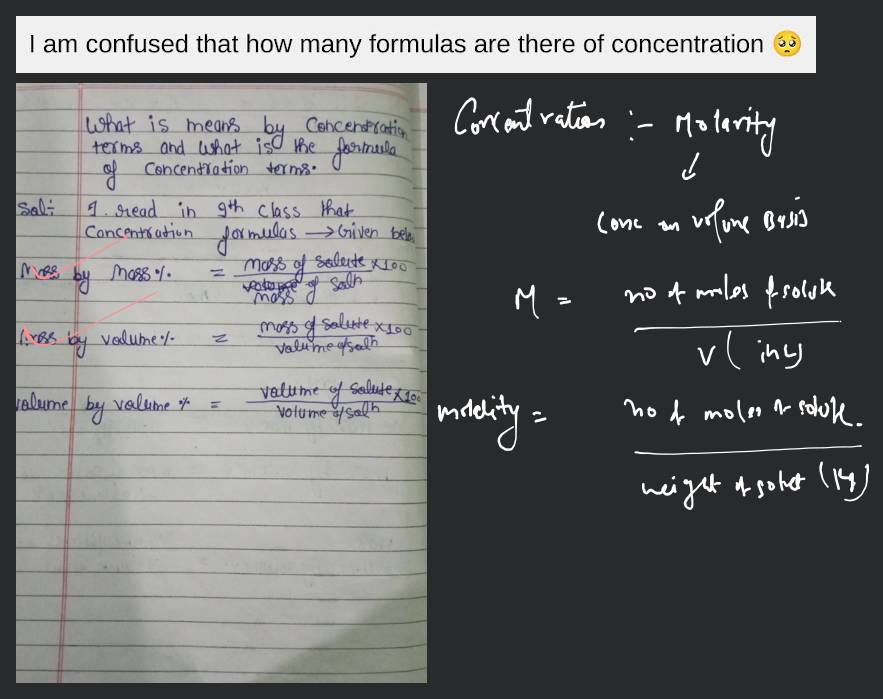 I am confused that how many formulas are there of concentration 🥺
What is means by Concentration
terms and what is the formula
of Concentration terms.
Sol:- I read in 9th class that
Concentration formulas → Given below
Mass by Mass % = mass of solute x 100
mass of Solⁿ
Mass by volume % = mass of solute x 100
volume of solⁿ
volume by volume % = volume of solute x 100
volume of solⁿ
Concentration :- Molarity
↓
Conc on volume Basis
M = no of moles of solute
V (in L)
molality = no of moles of solute.
weight of solvet (kg)